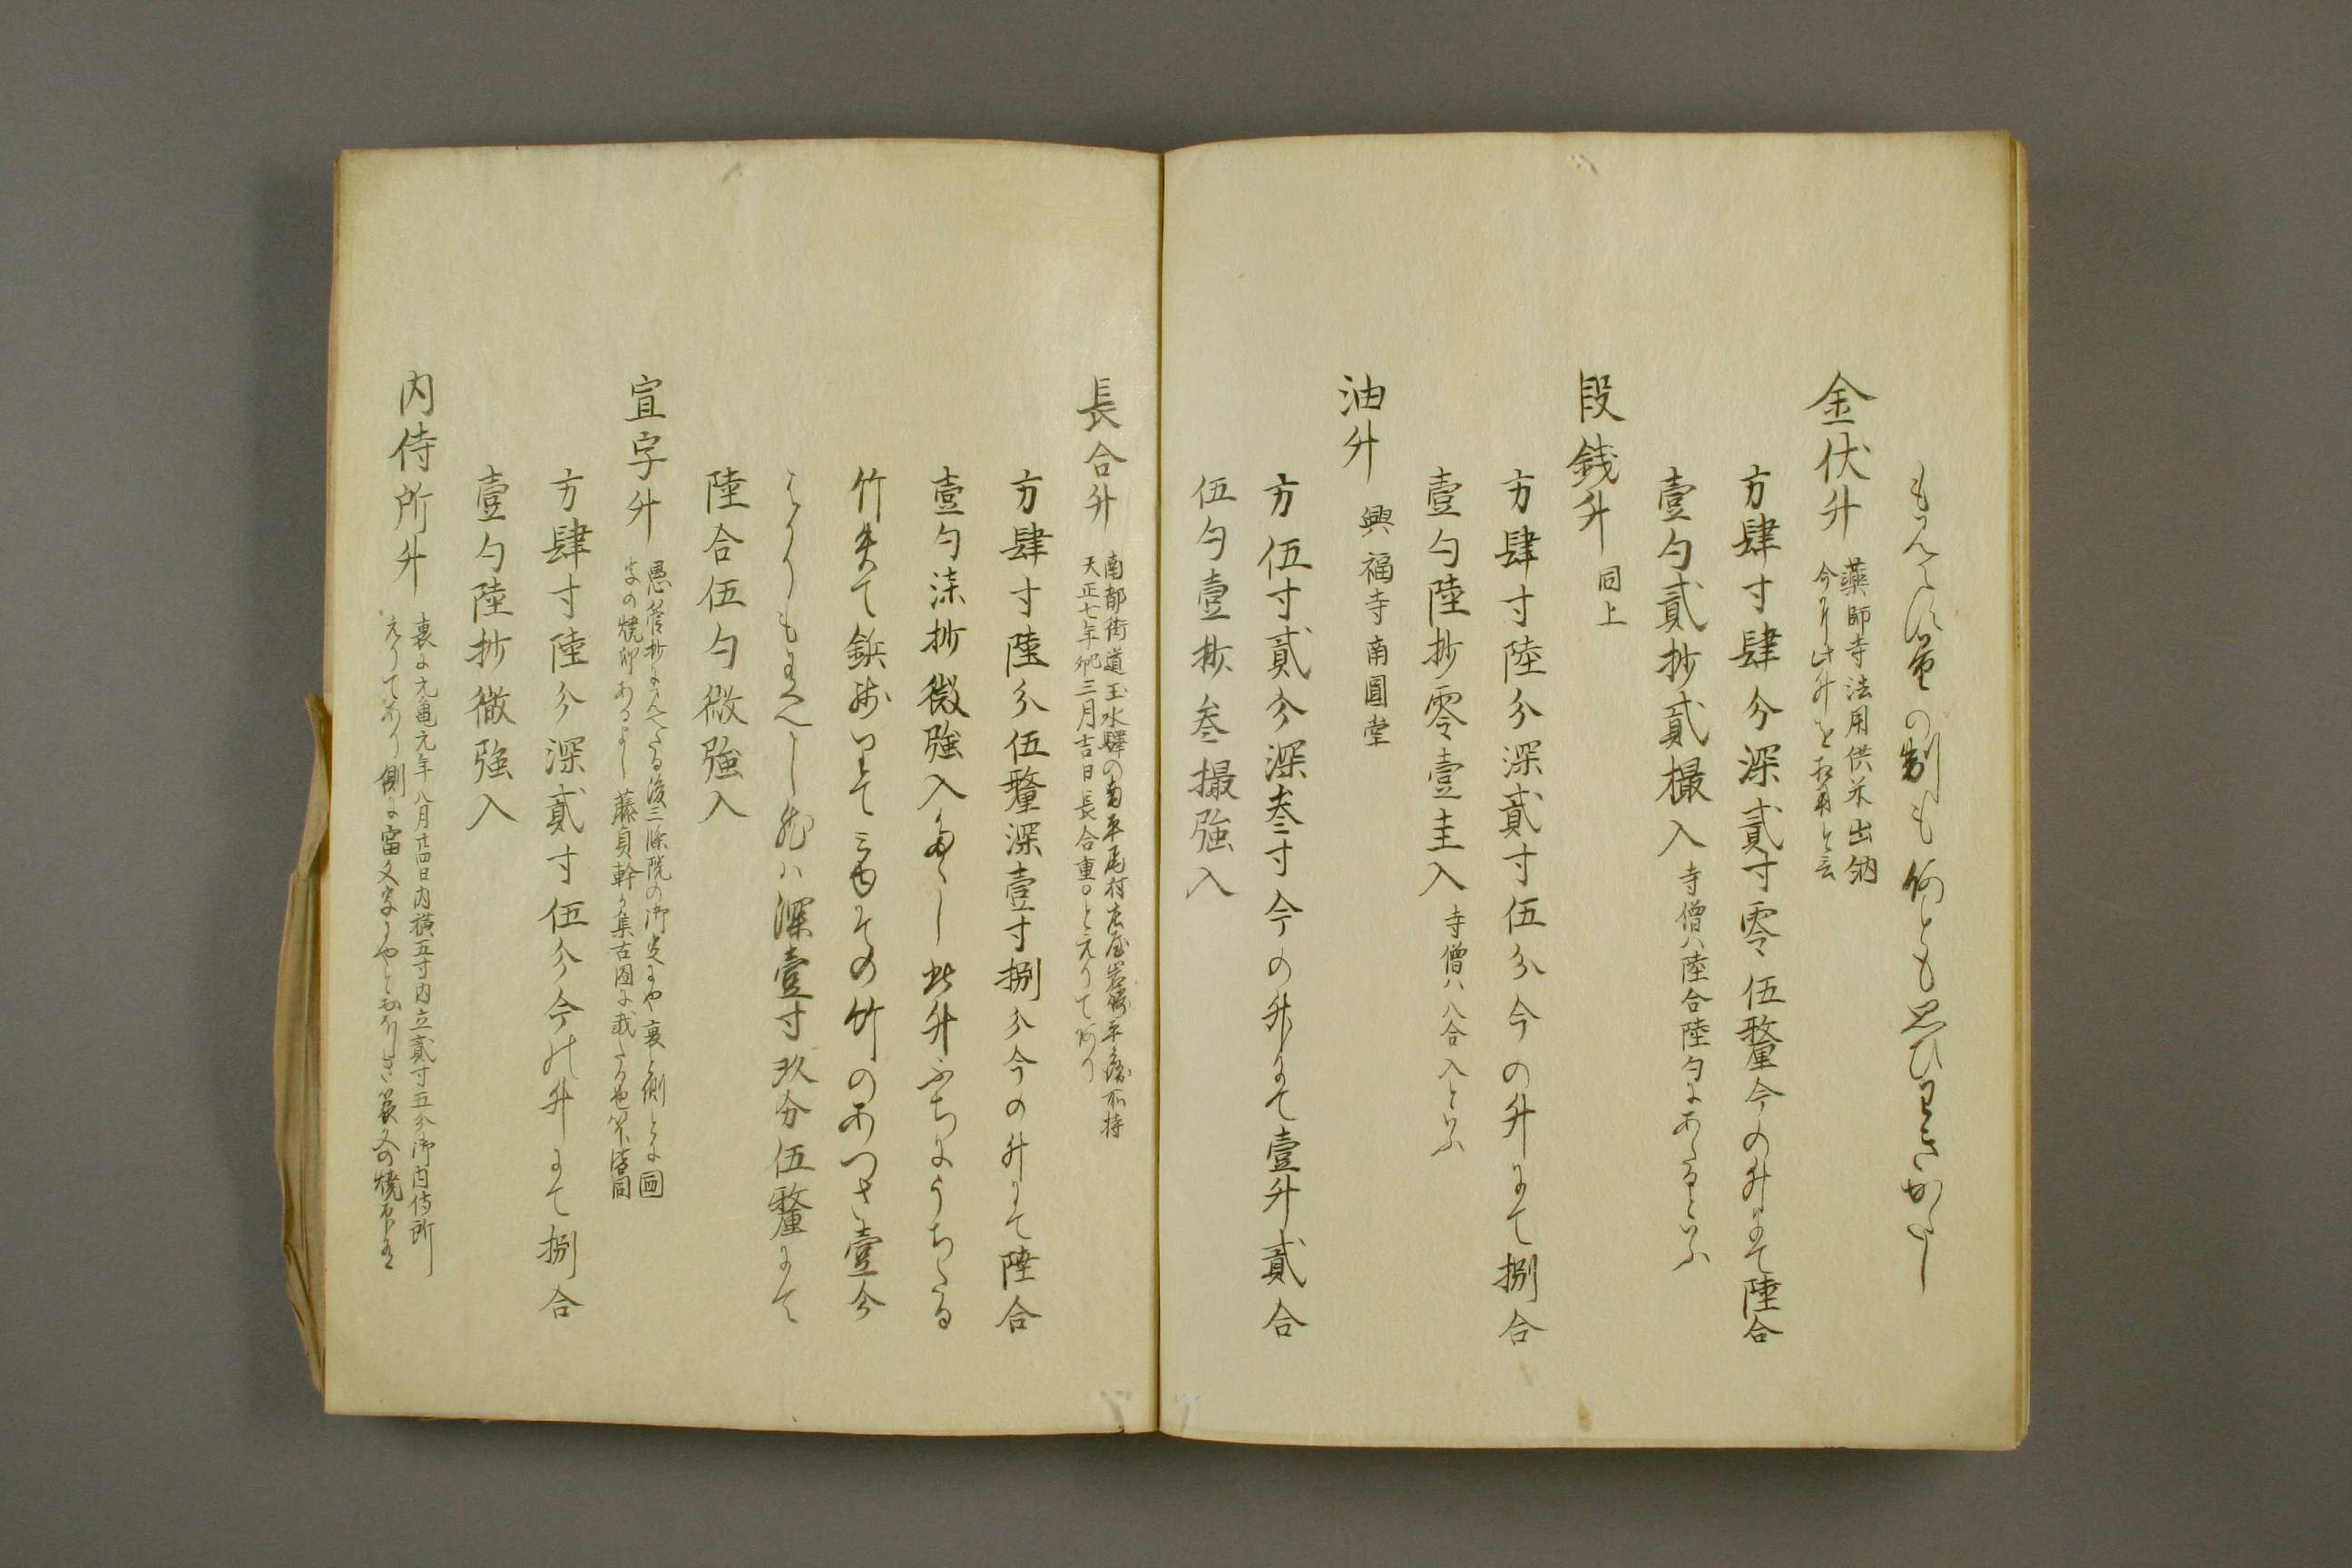 の制も何とも思ひわきかたし
金伏升
薬師寺法用供米出納
今に此升を用と云
方肆寸肆分深貳寸零伍釐今の升にて陸合
壹勺貳抄貳撮入 寺僧ハ陸合陸勺にあたるといふ
段銭升 同上
方肆寸陸分深貳寸伍分今の升にて捌合
壹勺陸抄零壹圭入 寺僧ハ八合入といふ
油升 興福寺南圓堂
方伍寸貳分深叁寸今の升にて壹升貳合
伍勺壹抄叁撮強入
長合升
南都街道玉水驛の南平尾村庄屋平蔵所持
天正七年卯己三月吉日長合重〇とえりてあり
方肆寸陸分伍釐深壹寸捌分今の升にて陸合
壹勺柒抄微強入へし此升ふちにうちたる
竹失て鋲残りてその竹のあつさ壹分
はかりもあるへし然ハ深壹寸玖分伍釐にて
陸合伍勺微強入
宣字升
愚管抄にみへたる後三條院の御定にや裏と側とに
字の焼印あるよし 藤貞幹か集古図に載たる
方肆寸陸分深貳寸伍分今の升にて捌合
壹勺陸抄微強入
内侍所升
裏に元亀元年八月廿四日内横五寸内立貳寸五分御内侍所
えりてあり側に富文字にやとおほしき篆文の焼印有